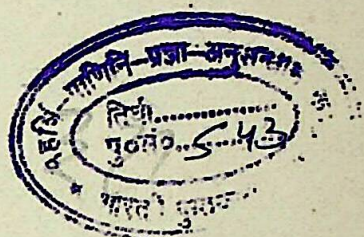 महर्षि-पाणिनि-प्रज्ञा-अनुसन्धान
तिथी..............
पु०सं०...543
* भारती